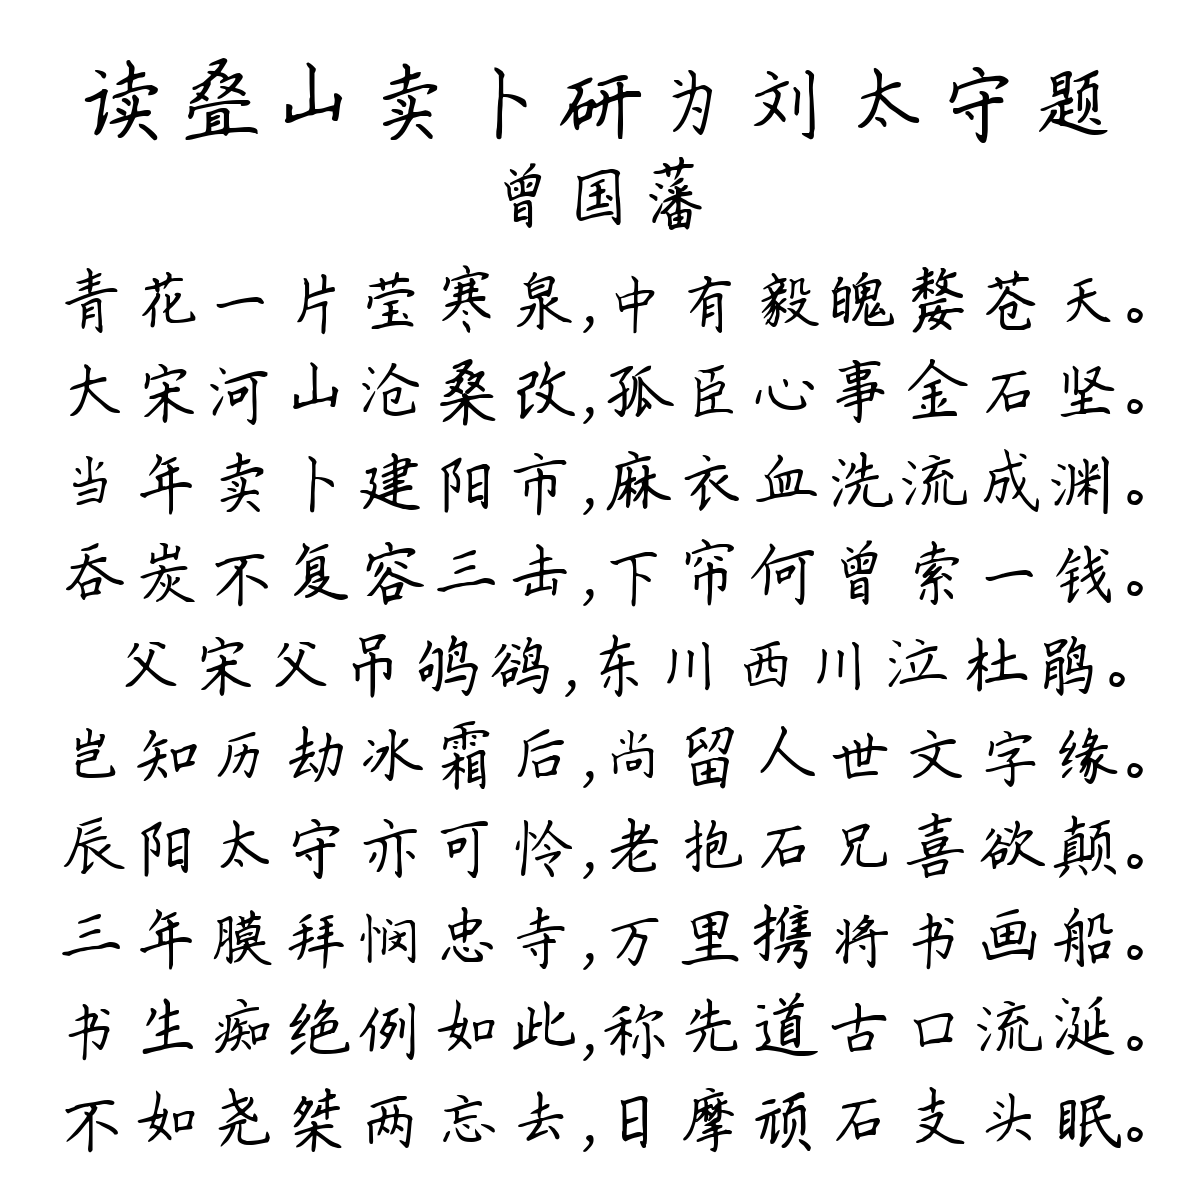 读叠山卖卜研为刘太守题
曾国藩
青花一片莹寒泉,中有毅魄嫠苍天。
大宋河山沧桑改,孤臣心事金石坚。
当年卖卜建阳市,麻衣血洗流成渊。
吞炭不复容三击,下帘何曾索一钱。
父宋父吊鸲鹆,东川西川泣杜鹃。
岂知历劫冰霜后,尚留人世文字缘。
辰阳太守亦可怜,老抱石兄喜欲颠。
三年膜拜悯忠寺,万里携将书画船。
书生痴绝例如此,称先道古口流涎。
不如尧桀两忘去,日摩顽石支头眠。